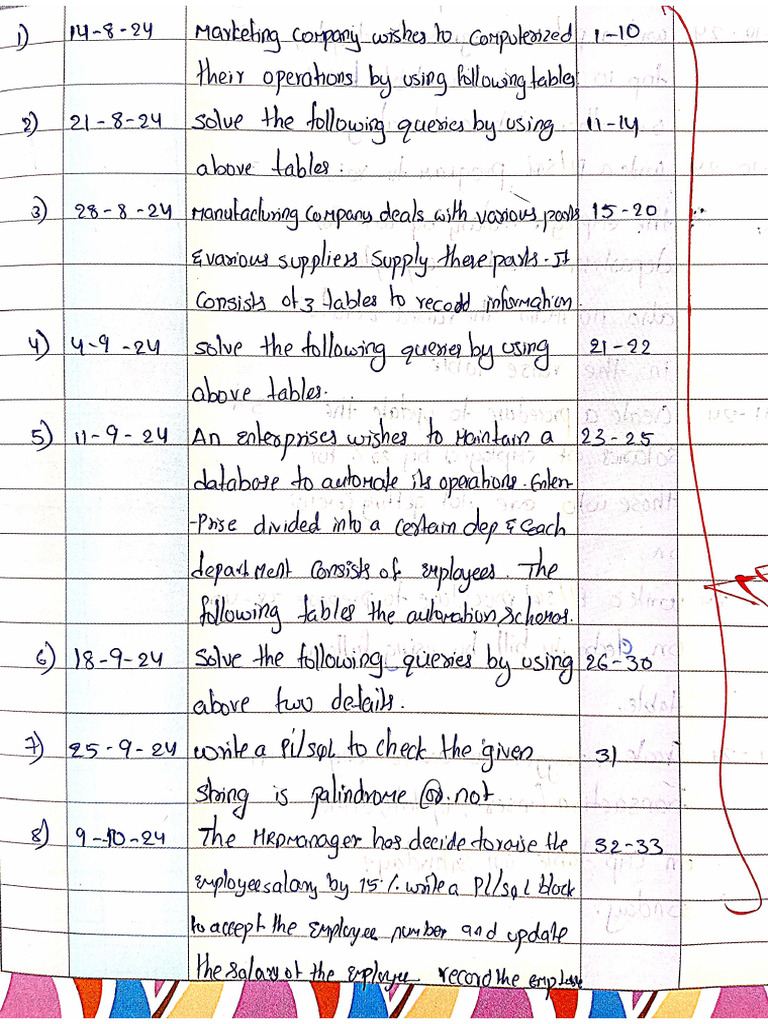 1) 14-8-24 Marketing Company wishes to Computerized 1-10
their operations by using following tables
2) 21-8-24 Solve the following queries by using 11-14
above tables.
3) 28-8-24 Manufacturing Company deals with various parts 15-20
& various suppliers supply these parts. It
Consists of 3 tables to record information.
4) 4-9-24 Solve the following queries by using 21-22
above tables.
5) 11-9-24 An Enterprises wishes to Maintain a 23-25
database to automate its operations. Enter-
-Prise divided into a certain dep & Each
department Consists of Employees. The
following tables the automation schemas.
6) 18-9-24 Solve the following queries by using 26-30
above two details.
7) 25-9-24 Write a Pl/sql to check the given 31
string is palindrome or not
8) 9-10-24 The HRDManager has decide to raise the 32-33
Employee salary by 15%. write a Pl/sql block
to accept the Employee number and update
the salary of the Employee record the employee